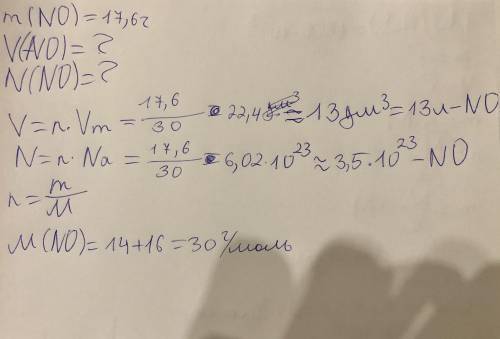 m(NO)=17,6г
V(NO)=?
N(NO)=?
V=n·Vm=17,6/30·22,4≈13дм³=13л-NO
N=n·Na=17,6/30·6,02·10²³≈3,5·10²³-NO
n=m/M
M(NO)=14+16=30г/моль